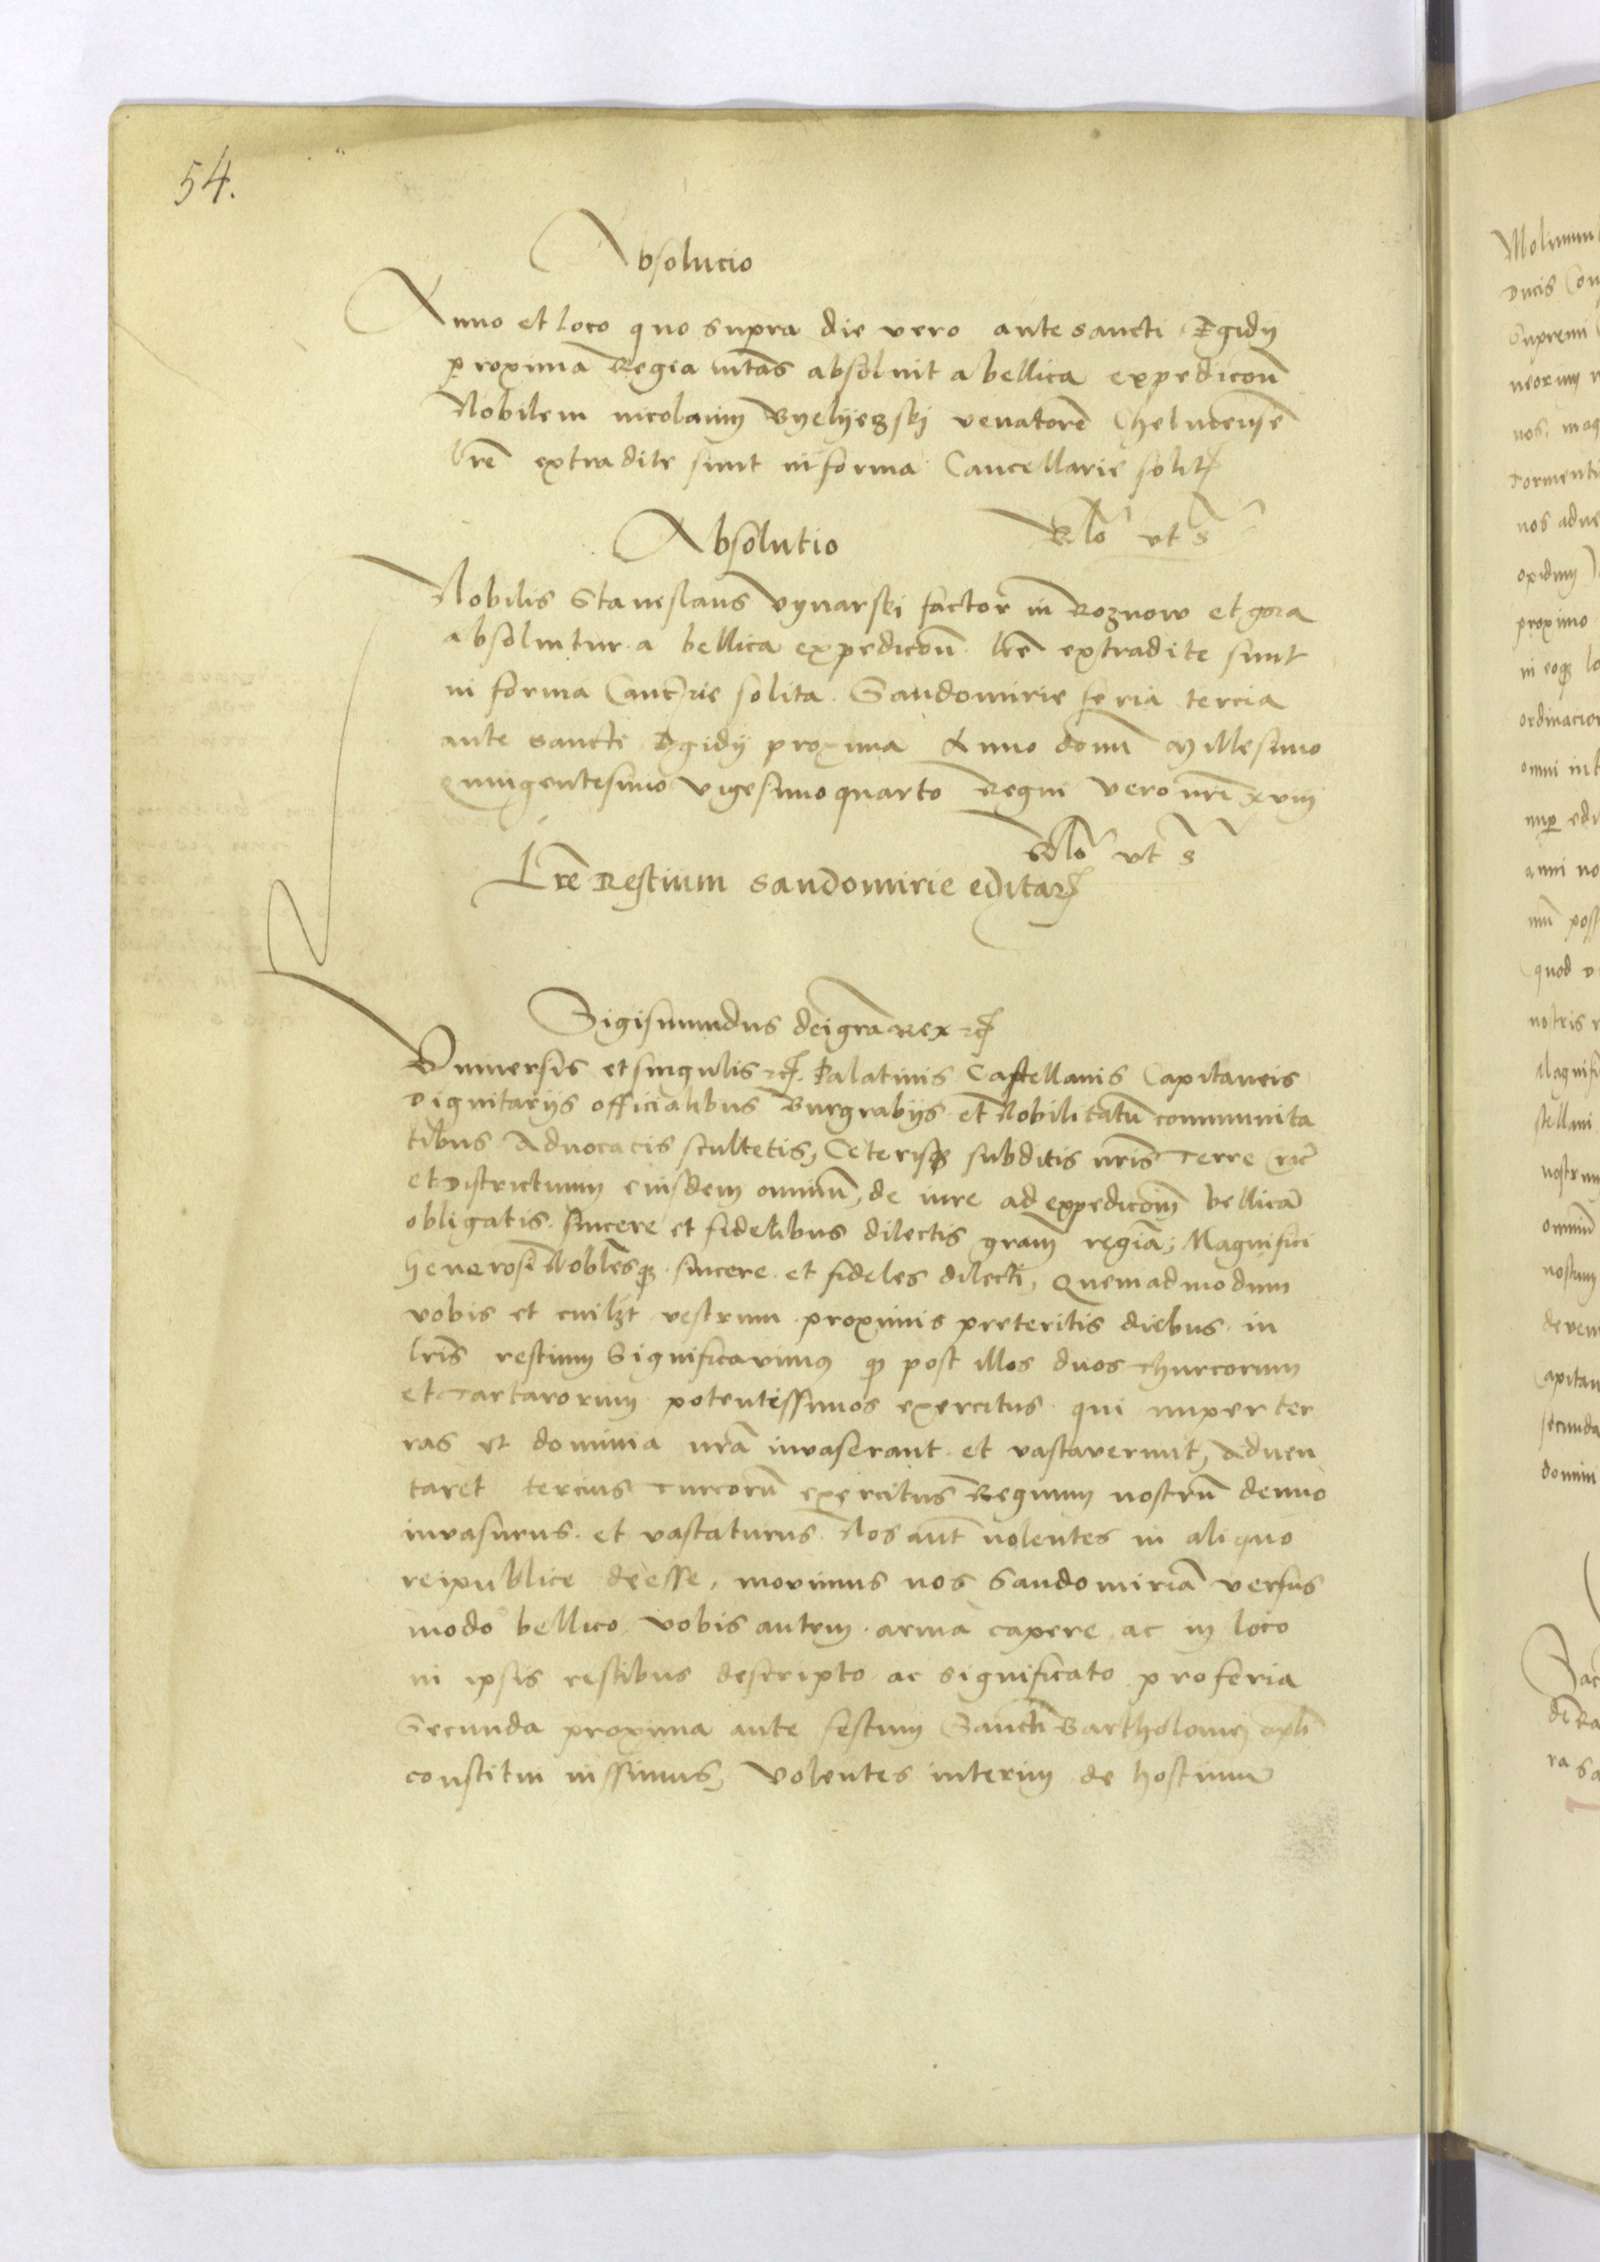 54.
Absolucio
Anno et loco quo supra die vero ante sancti Egidij
proxima Regia mtas absoluit a bellica expedicõn
Nobilem nicolaum Byelyeȝskj venatorẽ Chelmensẽ
lrẽ extradite sunt in forma Cancellarie solit
Rlõ vt s
Absolutio
Nobilis Stanislaus Vynarskj factor in Roznow et gora
absoluitur a bellica expedicõn lrẽ extradite sunt
in forma Canc̃rie solita Sandomirie feria tercia
ante sancti Egidij proxima Anno domi Millesimo
Quingentesimo vigesimo quarto Regni vero nrĩ xviij
Rlõ vt s
Lrẽ Restium Sandomirie editar
Sigismundus dei grã Rex
Vniuersis et singulis Palatinis Castellanis Capitaneis
Dignitarijs officialibus Burgrabijs et Nobilitatũ communita
tibus Aduocacis scultetis, Ceterisqȝ subditis nrĩs Terre
et Districtuum eiusdem omniũ, de iure ad expedicõm bellicã
obligatis sincere et fidelibus dilectis grãm regiã; Magnifici
Generosi Noblesqȝ sincere et fideles dilecti, Quemadmodum
vobis et cuilȝt vestrum proximis preteritis diebus in
lrĩs restium Significauimus qȝ post illos duos Thurcorum
et Tartarorum potentissimos exercitus qui nuper ter
ras et dominia nrã inuaserant et vastauerunt, aduen
taret tercius Turcorũ exercitus Regnum nostrũ denuo
inuasurus et vastaturus Nos aut̃ nolentes in aliquo
reipublice deesse, mouimus nos Sandomiriã versus
modo bellico vobis autem arma capere ac in loco
in ipsis restibus descripto ac significato pro feria
Secunda proxima ante festum Sancti Bartholomej apli
constitui iussimus, Volentes interim de hostium